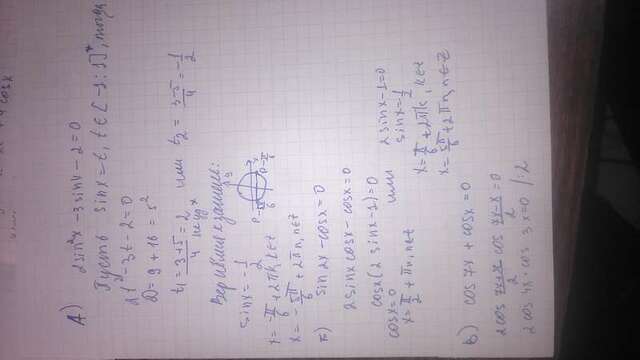 А) 2sin²x - 3sinx - 2 = 0
Пусть sinx = t, t ∈ [-1; 1]*, тогда
2t² - 3t - 2 = 0
D = 9 + 16 = 5²
t₁ = (3+5)/4 = 2 или t₂ = (3-5)/4 = -1/2
не уд *
Вернёмся к замене:
sinx = -1/2
x = -π/6 + 2πk, k∈Z
x = -5π/6 + 2πn, n∈Z
y
x
P -5π/6
P -π/6
Б) sin2x - cosx = 0
2sinx cosx - cosx = 0
cosx(2sinx - 1) = 0
cosx = 0 или 2sinx - 1 = 0
x = π/2 + πn, n∈Z
sinx = 1/2
x = π/6 + 2πk, k∈Z
x = 5π/6 + 2πn, n∈Z
в) cos7x + cosx = 0
2cos (7x+x)/2 cos (7x-x)/2 = 0
2cos4x · cos3x = 0 /:2